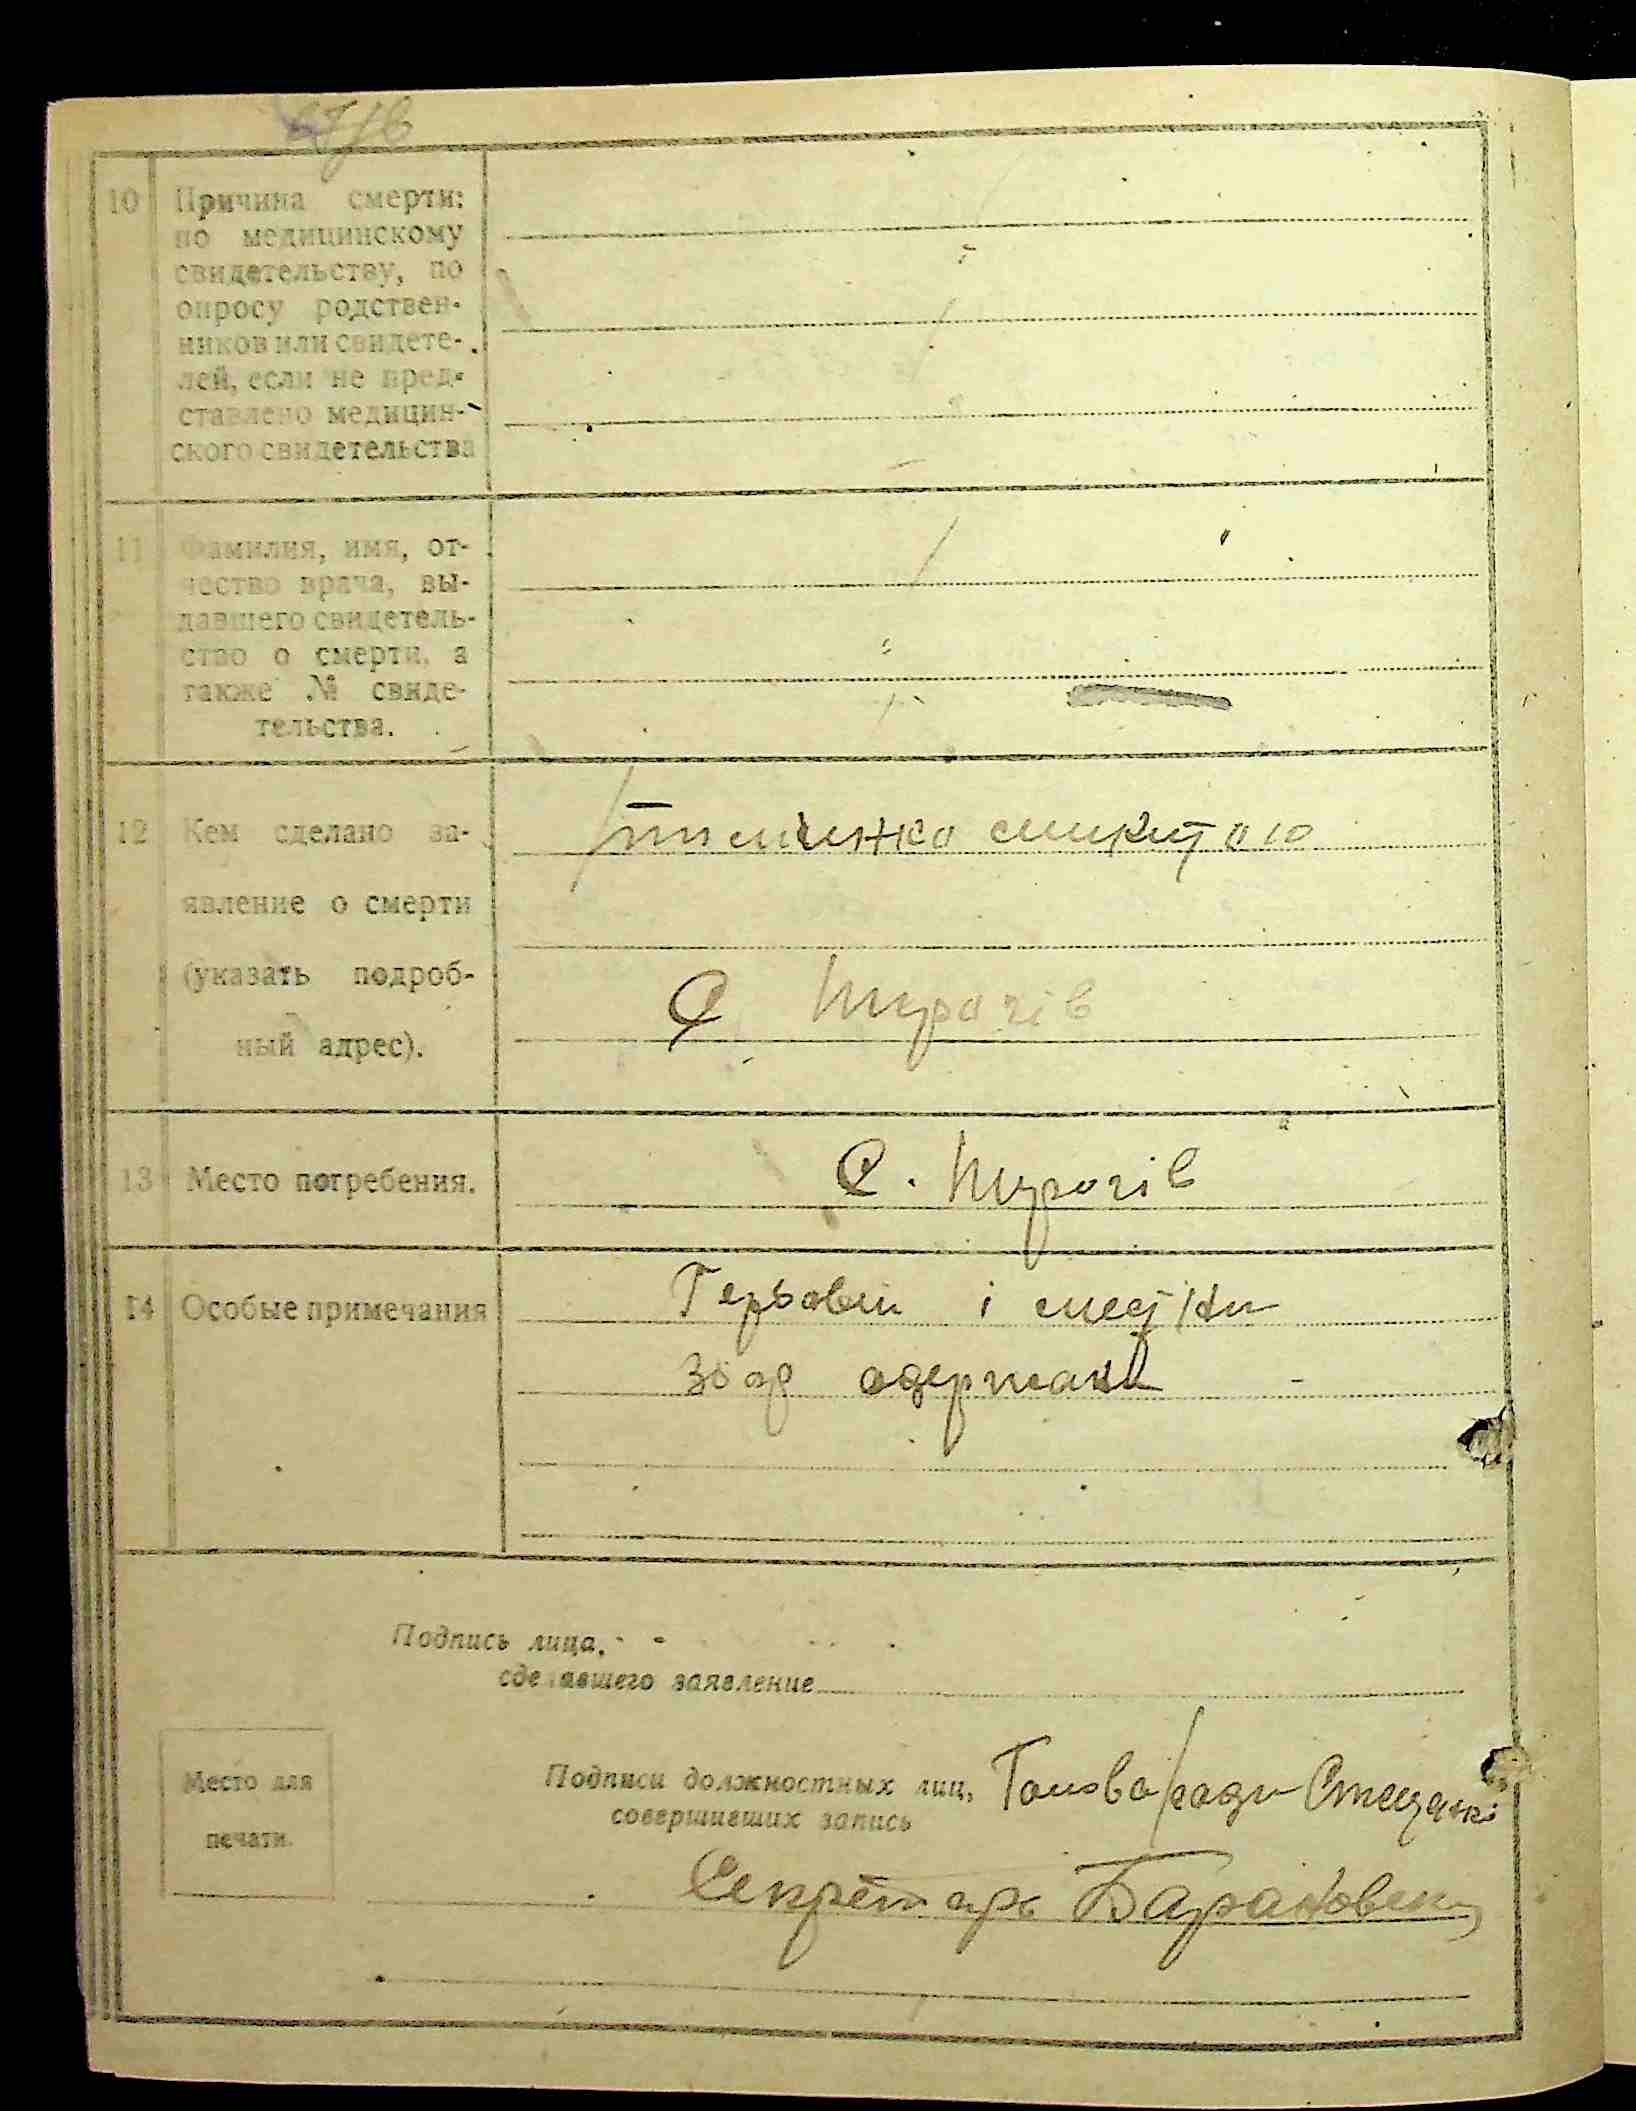 10 Причина смерти:
по медицинскому
свидетельству, по
опросу родствен-
ников или свидете-
лей, если не пред-
ставлено медицин-
ского свидетельства
11 Фамилия, имя, от-
чество врача, вы-
давшего свидетель-
ство о смерти, а
также № свиде-
тельства.
12 Кем сделано за-
явление о смерти
(указать подроб-
ный адрес).
С
13 Место погребения. С.
14 Особые примечания
і
одержав
Подпись лица,
сделавшего заявление
Место для
печати.
Подписи должностных лиц, Голова ради
совершивших запись
Секретарь Барановски